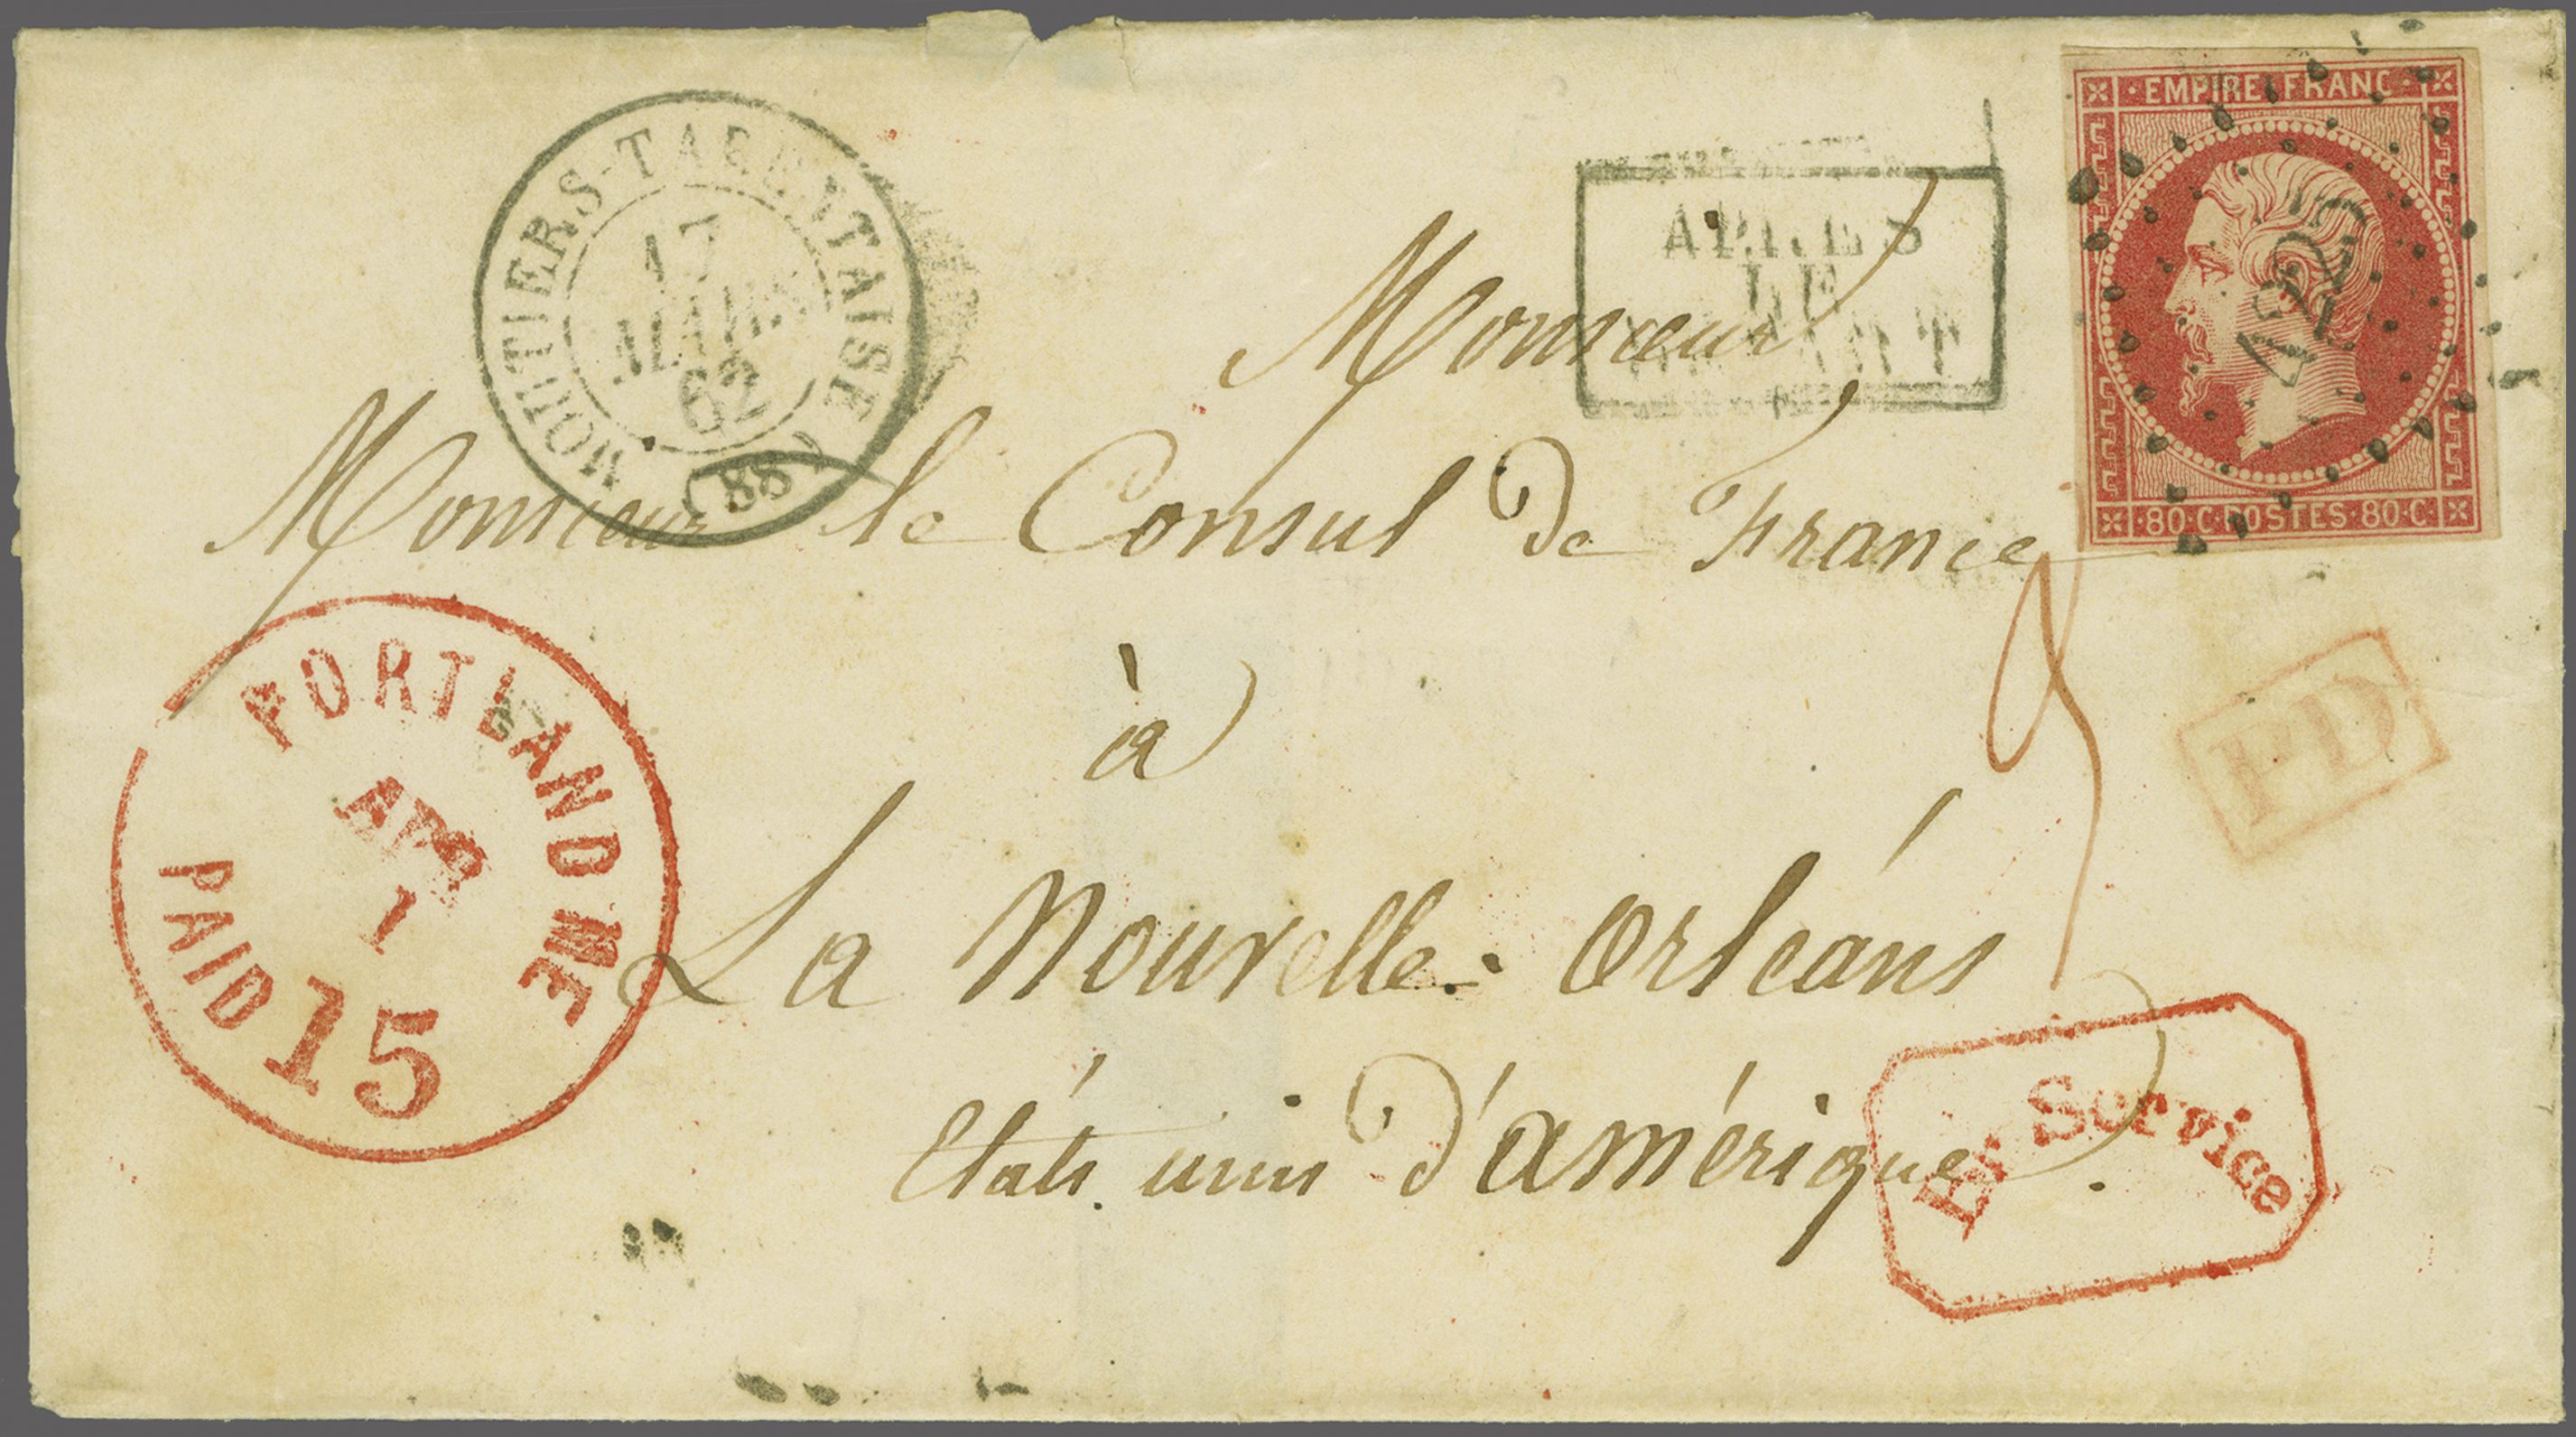 EMPIRE FRANC
4222
80·C·POSTES·80·C
MOUTIERS-TARENTAISE
17
MARS
62
(88)
APRES
LE
DEPART
Monsieur
Monsieur le Consul de France
à
La Nouvelle-Orléans
Etats unis d'amérique.
PD
PORTLAND ME
APR
1
PAID
15
Br Service